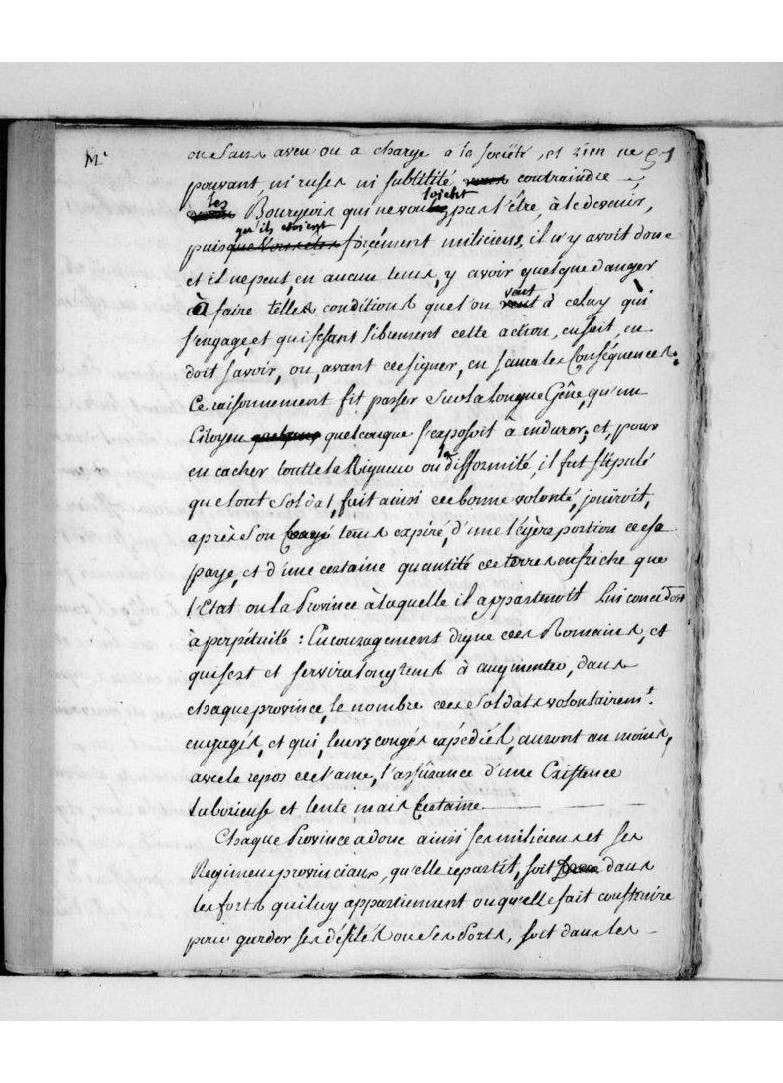 M.r
ou sans aveu ou a charge a la société, et rien ne 51
pouvant, ni ruses ni subtilité, contraindre
les Bourgeois qui ne vouloient pas l'être, à le devenir,
puis qu'ils étoient forcément miliciens, il n'y avoit donc
et il ne peut, en aucun tems, y avoir quelque danger
à faire telles conditions que l'on veut à celuy qui
s'engage, et qui fesant librement cette action, en sait, en
doit savoir, ou, avant de signer, en saura les Conséquences.
Ce raisonnement fit passer sur la longue Gêne, qu'un
Citoyen quelconque s'exposoit à endurer; et, pour
en cacher toutte la Rigueur ou la difformité, il fut stipulé
que tout soldat, fait ainsi de bonne volonté, jouiroit,
après son tems expiré, d'une légère portion de sa
paye, et d'une certaine quantité de terres en friche que
l'Etat ou la Province à laquelle il appartenoit lui concédoit
à perpétuité : Encouragement digne des Romains, et
qui sert et servira longtems à augmenter, dans
chaque province, le nombre des soldats volontairem.t
engagés, et qui, leurs congés expédiés, auront au moins,
avec le repos de l'ame, l'assûrance d'une Existence
laborieuse et lente mais Certaine
Chaque Province a donc ainsi ses miliciens et ses
Regimens provinciaux, qu'elle repartit, soit dans
les forts qui luy appartiennent ou qu'elle fait construire
pour garder ses défilés ou ses Ports, soit dans les